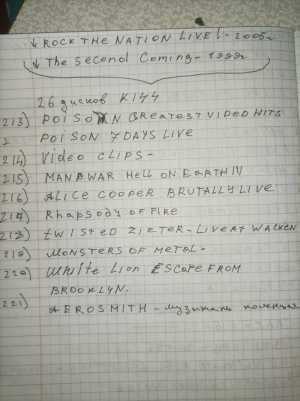 ↓ ROCK THE NATION LIVE! - 2005г
↓ The Second Coming - 1999г
26 дисков KISS
213) POISON GREATEST VIDEO HITS
2 POISON 7 DAYS LIVE
214) Video CLIPS -
215) MANOWAR HELL ON EARTH IV
216) ALICE COOPER BRUTALLY LIVE
217) Rhapsody OF FIRE
218) TWISTED SISTER - LIVE AT WACKEN
219) MONSTERS OF METAL -
220) White Lion ESCAPE FROM
BROOKLYN.
221)
AEROSMITH -